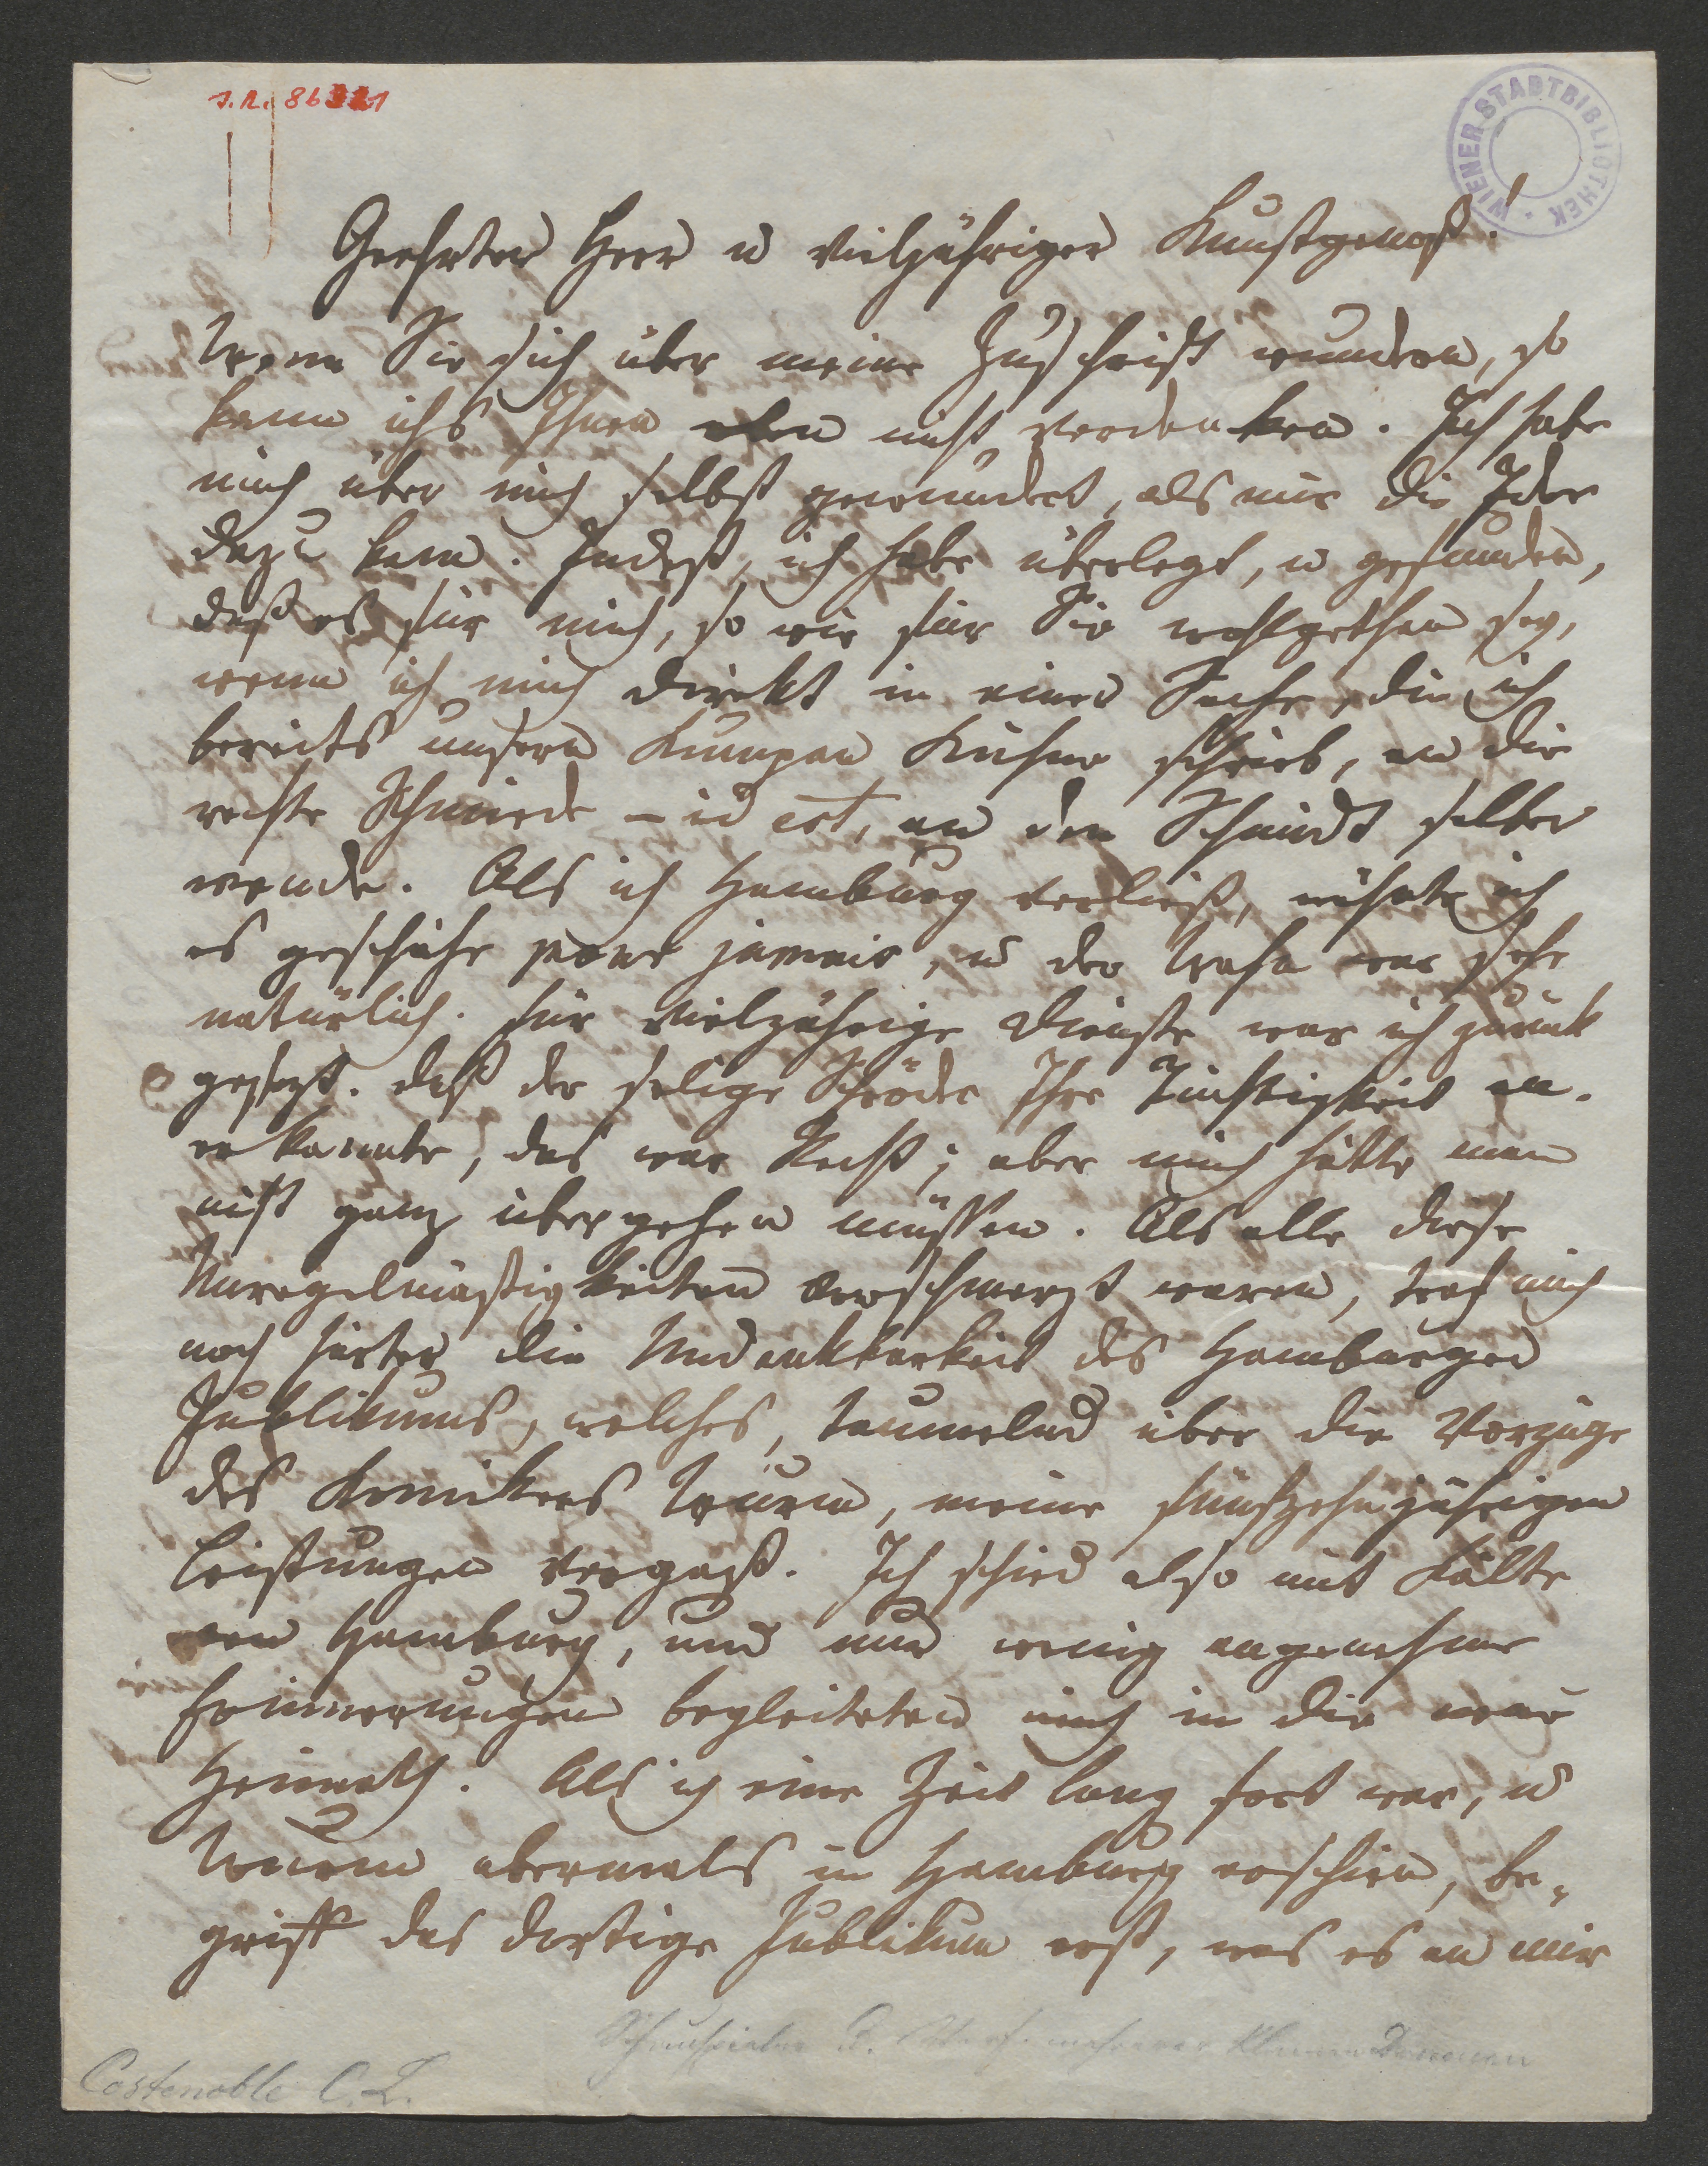 J.N. 86321
WIENER STADTBIBLIOTHEK
Geehrter Herr u vieljähriger Kunstgenoß!
Wenn Sie sich über meine Zuschrift wundern, so
kann ichs Ihnen eben nicht verdenken. Ich habe
mich über mich selbst gewundert, als mir die Idee
dazu kam. Indeß, ich habe überlegt, u gefunden,
daß es für mich, so wie für Sie wohlgethan sey,
wenn ich mich direkt in einer Sache, die ich
bereits unserm Kumpan Kühne schrieb, an die
rechte Schmiede – id est, an den Schmidt selber
wende. Als ich Hamburg verließ, wähnte ich
es geschähe pour jamais, u der Wahn war sehr
natürlich. Für vieljährige Dienste war ich zurück
gesetzt. Daß der selige Schröder Ihre Tüchtigkeit an-
erkannte, das war Recht; aber mich hätte man
nicht ganz übergehen müssen. Als alle diese
Unregelmäßigkeiten verschmerzt waren, traf mich
noch härter die Undankbarkeit des Hamburger
Publikums, welches, taumelnd über die Vorzüge
des Komikers Wurm, meine funfzehnjährigen
Leistungen vergaß. Ich schied also mit Kälte
von Hamburg, und nur wenig angenehme
Erinnerungen begleiteten mich in die neue
Heimath. Als ich eine Zeit lang fort war, u
Wurm abermals in Hamburg erschien, be-
griff das dortige Publikum erst, was es an mir
Schauspieler u. Verf. mehrerer kleinen Dramen
Costenoble C. L.